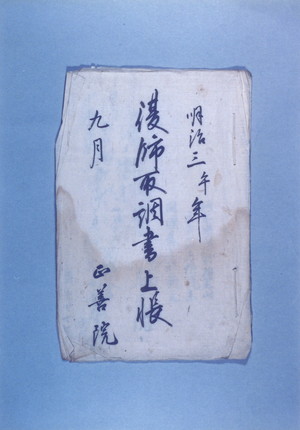 明治三午年
護師取調書上帳
九月
正善院